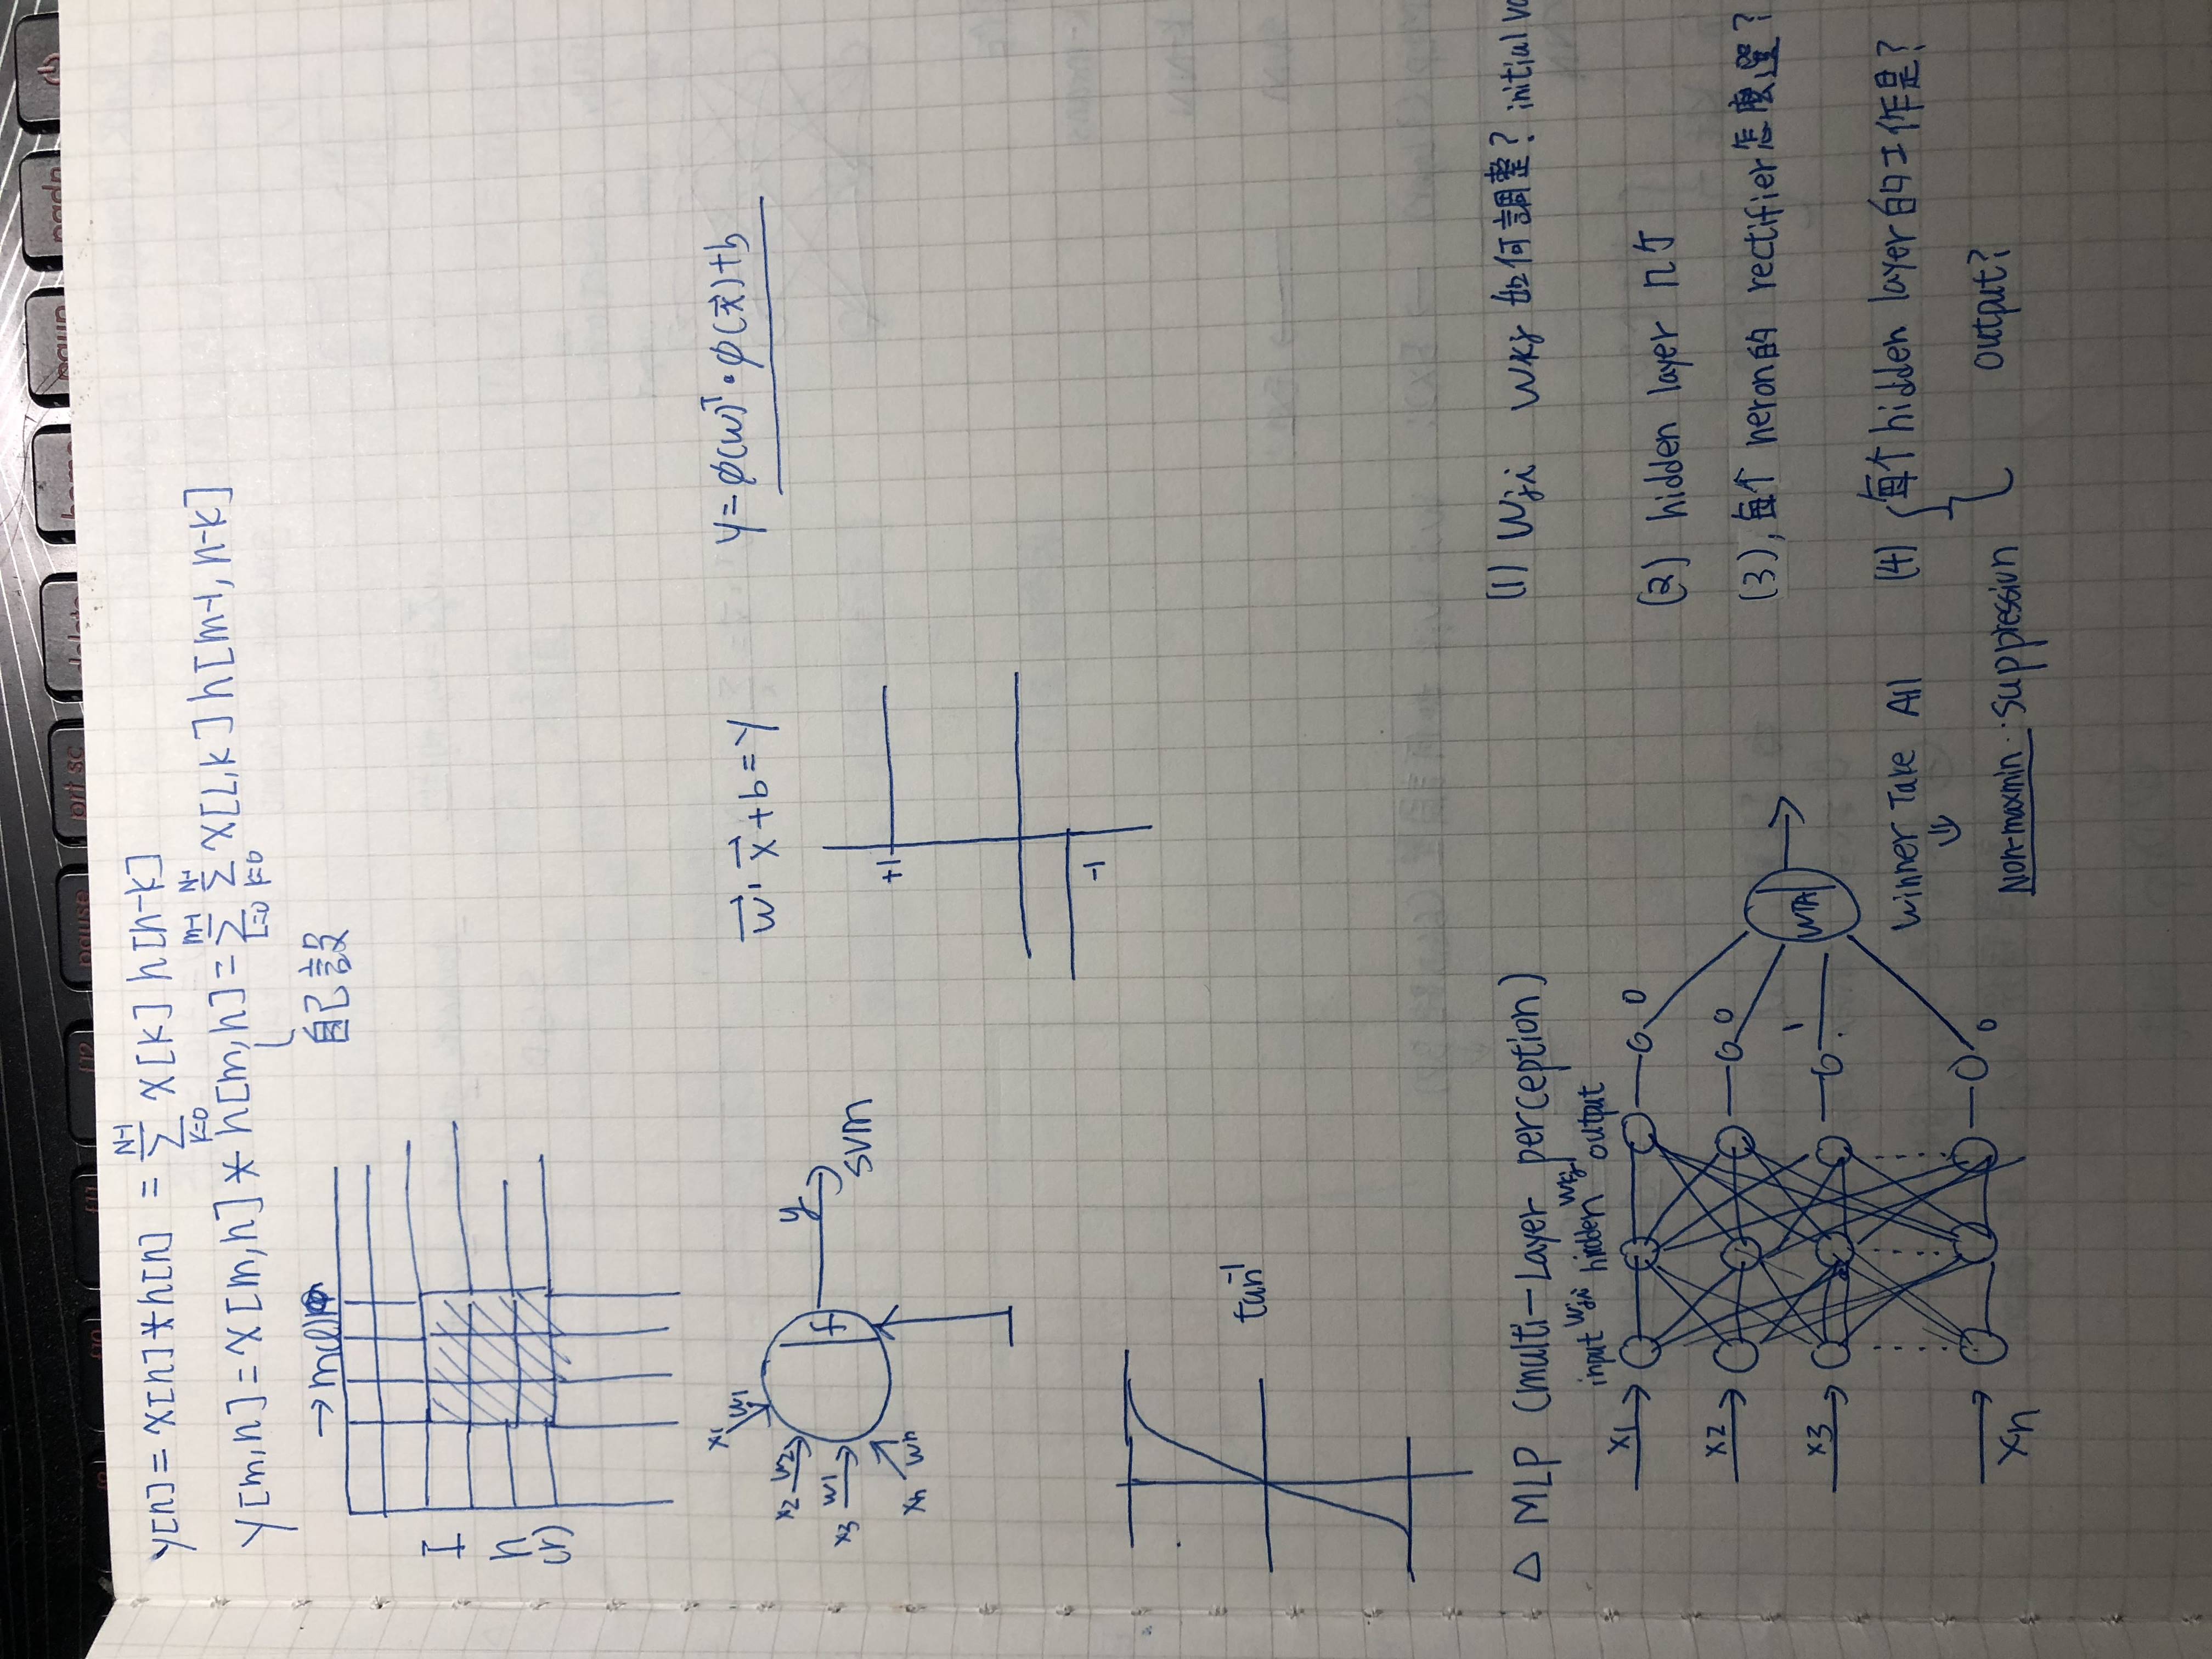 f10 f11 f12 pause prt sc delete home pgup pgdn
y[n] = x[n] * h[n] = N-1 Σ k=0 x[k] h[n-k]
y[m,n] = x[m,n] * h[m,n] = m-1 Σ l=0 N-1 Σ k=0 x[l,k] h[m-1, n-k]
自己設
→ m(l)
I
n
(r)
x1 w1
x2 w2
x3 w1
xn wn
f
y
svm
w' x + b = y
y = φ(w)^T · φ(x) + b
+1
-1
tan^-1
△ MLP (multi-Layer perception)
input wji hidden wkj output
x1
x2
x3
xn
0
0
1
0
WTA
Winner Take All
⇓
Non-maxmin suppression
(1) wji wkj 如何調整? initial
(2) hidden layer 几个
(3), 每个 neron的 rectifier怎麼選?
(4) 每个hidden layer的工作是?
output?